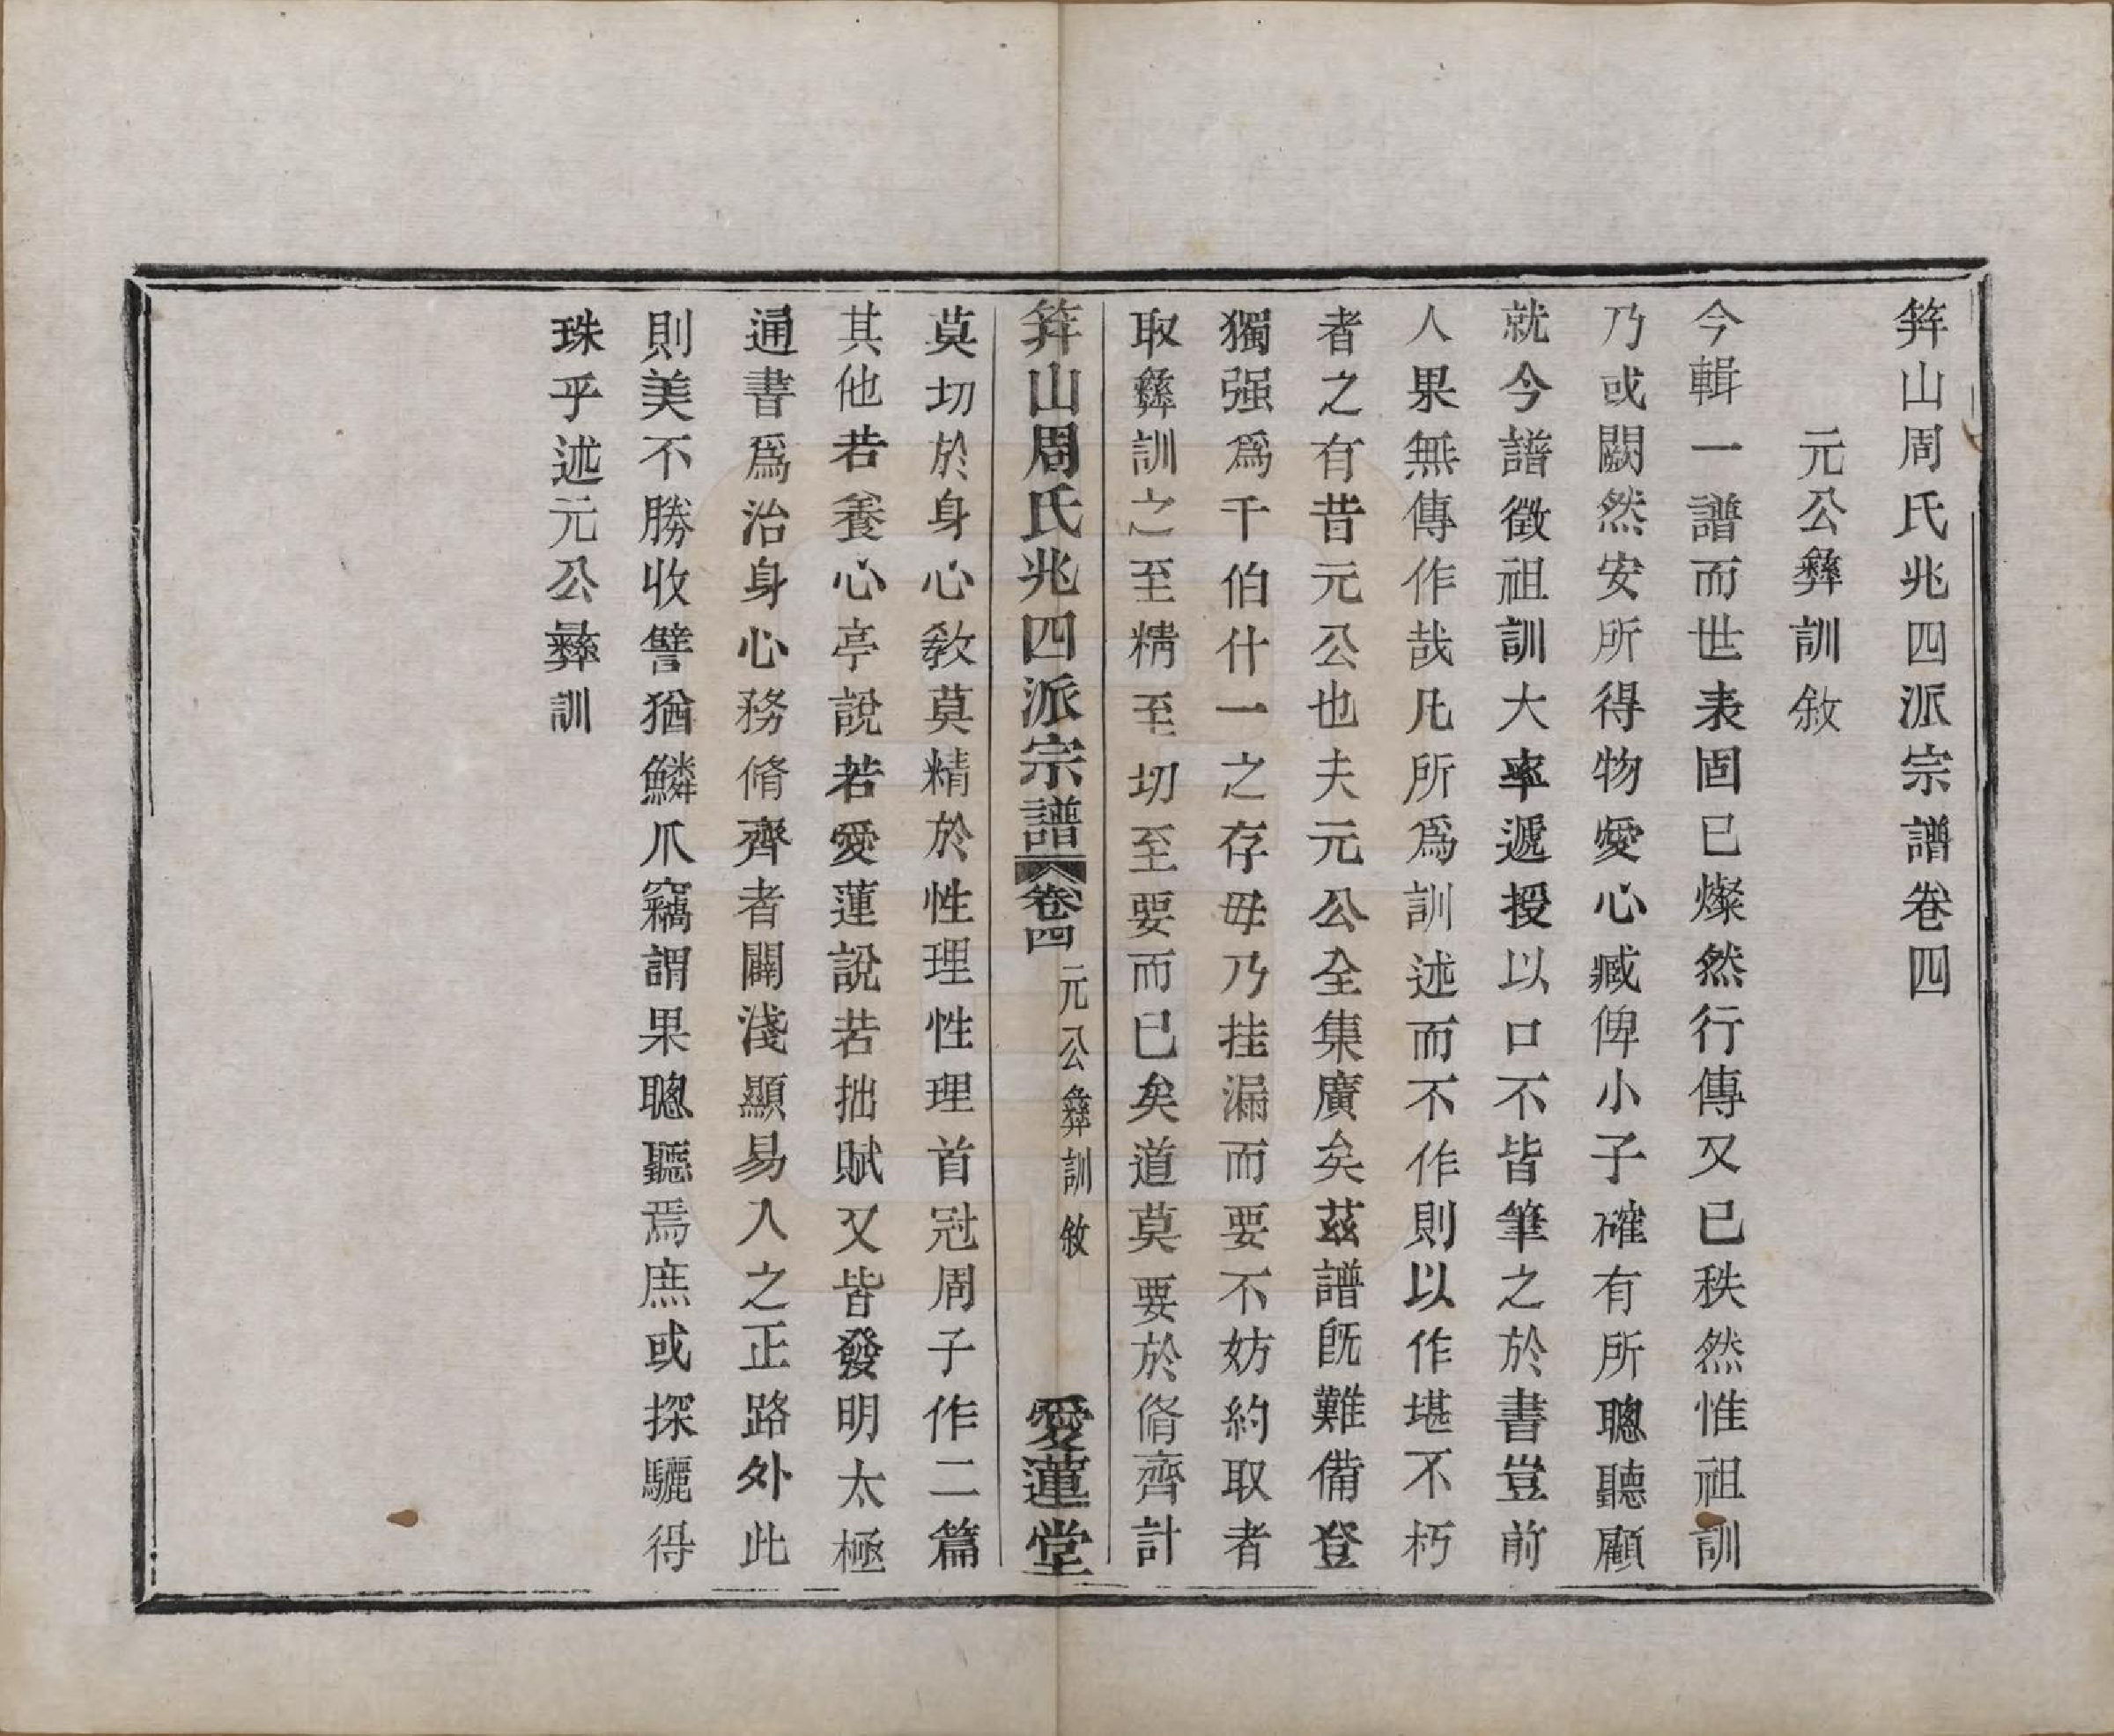 筓山周氏兆四派宗譜卷四
元公彝訓敘
今輯一譜而世表固已燦然行傳又已秩然惟祖訓
乃或闕然安所得物愛心臧俾小子確有所聰聽顧
就今譜徵祖訓大率遞授以口不皆筆之於書豈前
人果無傳作哉凡所爲訓述而不作則以作堪不朽
者之有昔元公也夫元公全集廣矣茲譜旣難備登
獨强爲千伯什一之存毋乃挂漏而要不妨約取者
取彝訓之至精至切至要而已矣道莫要於脩齊計
筓山周氏兆四派宗譜 卷四 元公彝訓敘 愛蓮堂
莫切於身心敎莫精於性理性理首冠周子作二篇
其他若養心亭說若愛蓮說若拙賦又皆發明太極
通書爲治身心務脩齊者闢淺顯易入之正路外此
則美不勝收譬猶鱗爪竊謂果聰聽焉庶或探驪得
珠乎述元公彝訓